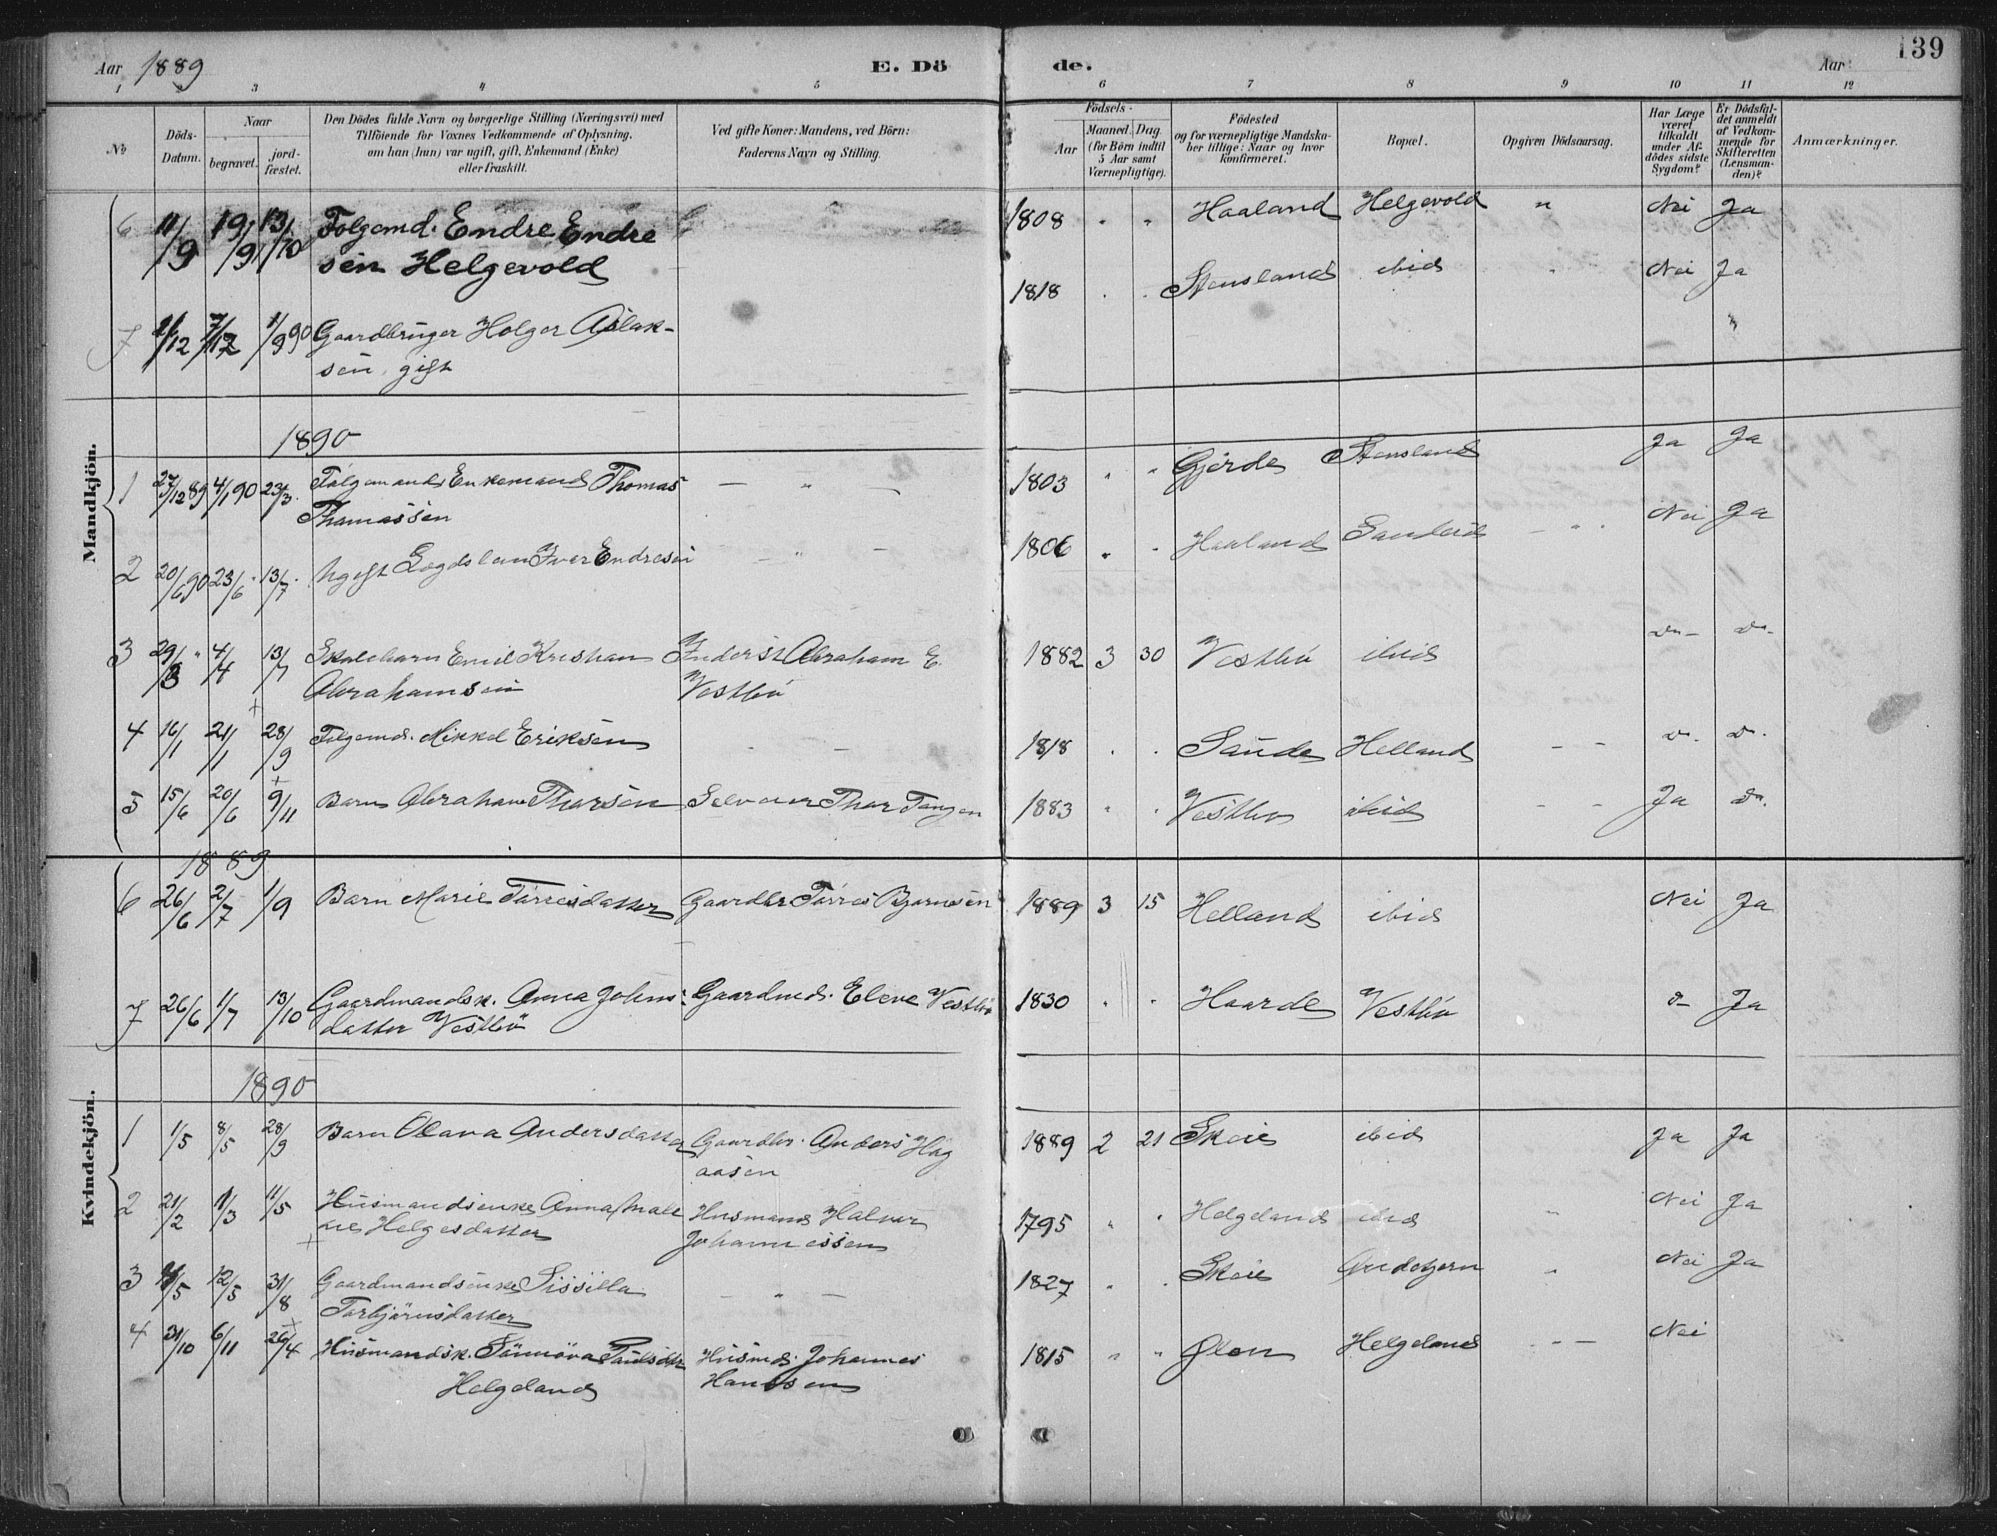 Aar 1889 E. Dö de. Aar 139
1 3 4 5 6 7 8 9 10 11 12
No
Döds-Datum.
Naar
begravet.
jord-fæstet.
Den Dödes fulde Navn og borgerlige Stilling (Næringsvei) med
Tilföiende for Voxnes Vedkommende af Oplysning,
om han (hun) var ugift, gift, Enkemand (Enke)
eller fraskilt.
Ved gifte Koner: Mandens, ved Börn:
Faderens Navn og Stilling.
Födsels-
Aar
Maaned. Dag
(for Börn indtil
5 Aar samt
Værnepligtige).
Födested
og for værnepligtige Mandska-
ber tillige: Naar og hvor
konfirmeret.
Bopæl.
Opgiven Dödsaarsag.
Har Læge
været
tilkaldt
under Af-
dödes sidste
Sygdom?
Er Dödsfal-
det anmeldt
af Vedkom-
mende for
Skifteretten
(Lensman-
den)?
Anmærkninger.
Mandkjön.
6 11/9 19/9 13/10 Folgemd. Endre Endre 1808 " " Haaland Helgevold " Nei Ja
sen Helgevold
7 2/12 7/12 1/9 90 Gaardbruger Holger Aslak- 1818 . . Stensland ibid " Nei Ja
sen, gift
1890
1 27/12 89 4/1 90 23/3. Folgemands Enkemand Thomas — " — 1803 " " Gjerde Stensland Ja Ja
Thomassen
2 20/6 90 23/6 . 13/7. Ugift Lægdslem Iver Endresen — " — 1806 " . Haaland Sandeid — " . Nei Ja
3 29/3 " 4/4 13/7 Skolebarn Emil Kristian Inderst Abraham E. 1882 3 30 Vestbö ibid do- do-
Abrahamsen Vestbö
4 16/1 21/1 28/9 Folgemd. Mikkel Eriksen - - 1818 . . Sande Helland - - do. do.
5 15/6 20/6 9/11 Barn Abraham Thorsen Selveier Thor Tangen 1883 " . Vestbö ibid - - Ja do.
1889
Kvindekjön.
6 26/6 2/7 1/9 Barn Marie Törresdatter Gaardbr Törres Bjarnesen 1889 3 15 Helland ibid Nei Ja
7 26/6 1/7 13/10 Gaardmandsk. Anna Johns- Gaardmd. Eleve Vestbö 1830 " " Haarde Vestbö do- Ja
datter Vestbö
1890
1 1/5 8/5 28/9 Barn Olava Andersdatter Gaardbr. Anders Hög 1889 2 21 Skeie ibid Ja Ja
aasen
2 21/2 1/3 11/5 Husmandsenke Anna Male Husmand Halvor 1795 " . Helgeland ibid " Nei Ja
ne Helgesdatter Johannessen
3 /5 12/5 31/8 Gaardmandsenke Sissilla — " — 1827 " . Skeie " Nei Ja
Torbjörnsdatter
4 31/10 6/11 26/4 Husmandsk. Sönnöva Paulsdtr Husmd. Johannes 1815 " " Ølen Helgeland - - Nei
Helgeland Hanssen